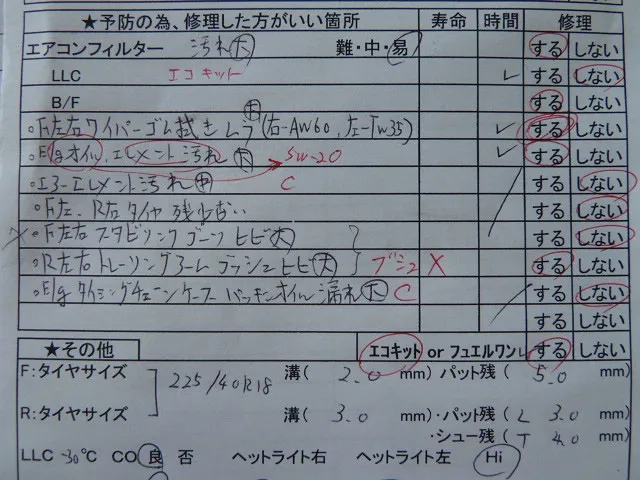 ★予防の為、修理した方がいい箇所 寿命 時間 修理
エアコンフィルター 汚れ大 難・中・易 する しない
LLC エコキット ✓ する しない
B/F する しない
○F左右ワイパーゴム拭きムラ(右-AW60,左-TW35) 大 ✓ する しない
○E/gオイル,エレメント汚れ 大 5W-20 ✓ する しない
○エアーエレメント汚れ 中 C する しない
○F左、R右タイヤ残少ない する しない
○F左右スタビリンクブーツヒビ大 する しない
○R左右トレーリングアームブッシュヒビ大 ブシュ X する しない
○E/gタイミングチェーンケースパッキンオイル漏れ C する しない
する しない
★その他 エコキット or フュエルワン する しない
F:タイヤサイズ 225/40R18 溝( 2.0 mm)パット残( 5.0 mm)
R:タイヤサイズ 溝( 3.0 mm)・パット残( L 3.0 mm)
・シュー残( T 4.0 mm)
LLC -30℃ CO 良 否 ヘットライト右 ヘットライト左 Hi